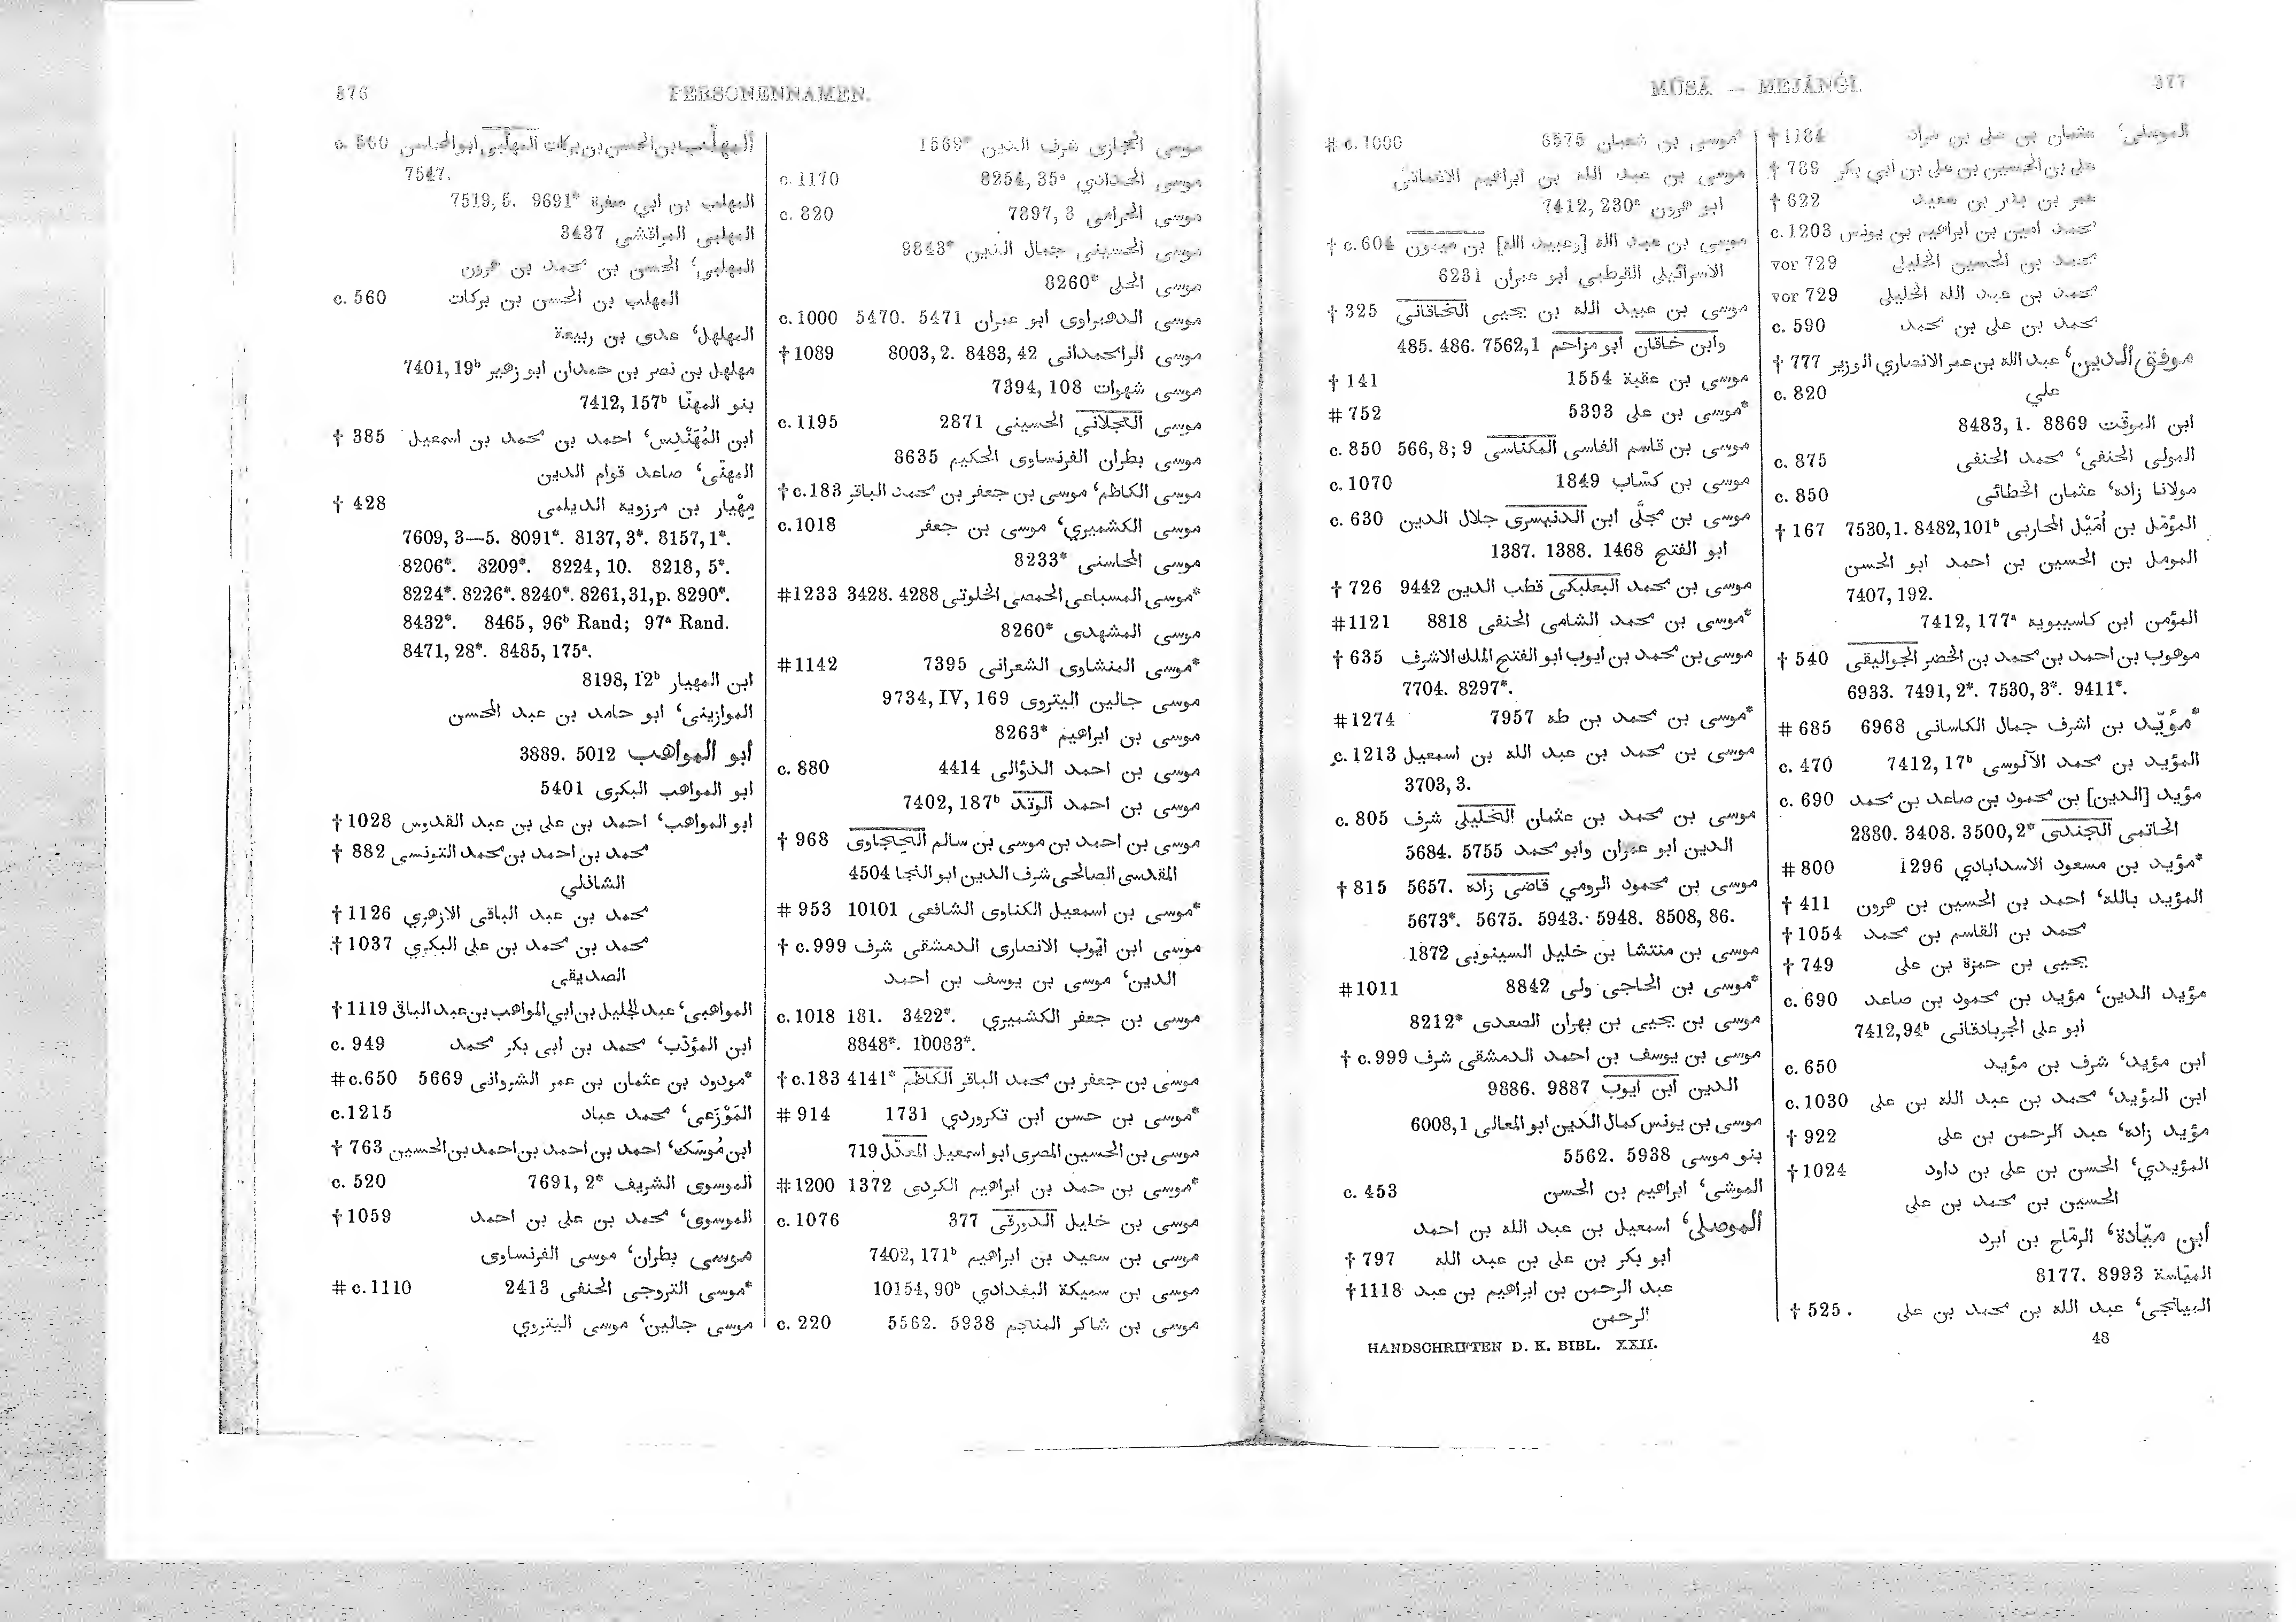 376 PERSONENNAMEN.
المهلّب بن الحسن بن بركات المهلّبي ابو المحاسن c. 560
7547.
المهلب بن ابي صفرة 7519, 5. 9691*
المهلبى المراقشى 3437
المهلبى‘ الحسن بن محمد بن هرون
المهلب بن الحسن بن بركات c. 560
المهلهل‘ عدى بن ربيعة
مهلهل بن نصر بن حمدان ابو زهير 7401, 19ᵇ
بنو المهنّا 7412, 157ᵇ
ابن المُهَنْدِس‘ احمد بن محمد بن اسمعيل † 385
المهنّى‘ صاعد قوام الدين
مِهْيار بن مرزويه الديلمى † 428
7609, 3—5. 8091*. 8137, 3*. 8157, 1*.
8206*. 8209*. 8224, 10. 8218, 5*.
8224*. 8226*. 8240*. 8261, 31, p. 8290*.
8432*. 8465, 96ᵇ Rand; 97ᵃ Rand.
8471, 28*. 8485, 175ᵃ.
ابن المهيار 8198, 12ᵇ
الموازينى‘ ابو حامد بن عبد المحسن
أبو المواهب 3889. 5012
ابو المواهب البكرى 5401
ابو المواهب‘ احمد بن على بن عبد القدوس † 1028
محمد بن احمد بن محمد التونسى † 882
الشاذلي
محمد بن عبد الباقى الازهري † 1126
محمد بن محمد بن على البكري † 1037
الصديقى
المواهبى‘ عبد الجليل بن ابي المواهب بن عبد الباقى † 1119
ابن المؤدّب‘ محمد بن ابى بكر محمد c. 949
*مودود بن عثمان بن عمر الشروانى 5669 # c. 650
المَوْزَعى‘ محمد عباد c. 1215
ابن مُوسَك‘ احمد بن احمد بن احمد بن الحسين † 763
الموسوى الشريف 7691, 2* c. 520
الموسوى‘ محمد بن على بن احمد † 1059
موسى بطران‘ موسى الفرنساوى
*موسى التروجى الحنفى 2413 # c. 1110
موسى جالين‘ موسى اليتروي
موسى الحجازى شرف الدين 1569*
موسى الحدادي 8254, 35ᵃ c. 1170
موسى الحرامى 7897, 3 c. 820
موسى الحسينى جمال الدين 9843*
موسى الحلى 8260*
موسى الدهبراوى ابو عبران 5470. 5471 c. 1000
موسى الرامحمدانى 8003, 2. 8483, 42 † 1089
موسى شهوات 7394, 108
موسى العجلانى الحسينى 2871 c. 1195
موسى بطران الفرنساوى الحكيم 8635
موسى الكاظم‘ موسى بن جعفر بن محمد الباقر † c. 183
موسى الكشميري‘ موسى بن جعفر c. 1018
موسى المحاسنى 8233*
*موسى المسباعى الحمصى الخلوتى 3428. 4288 # 1233
موسى المشهدى 8260*
*موسى المنشاوى الشعرانى 7395 # 1142
موسى جالين اليتروى 9734, IV, 169
موسى بن ابراهيم 8263*
موسى بن احمد الذؤالى 4414 c. 880
موسى بن احمد الوتد 7402, 187ᵇ
موسى بن احمد بن موسى بن سالم الحجاوى † 968
المقدسى الصالحى شرف الدين ابو النجا 4504
*موسى بن اسمعيل الكناوى الشافعى 10101 # 953
موسى ابن ايّوب الانصارى الدمشقى شرف † c. 999
الدين‘ موسى بن يوسف بن احمد
موسى بن جعفر الكشميري 181. 3422*. c. 1018
8848*. 10083*.
موسى بن جعفر بن محمد الباقر الكاظم 4141* † c. 183
*موسى بن حسن ابن تكروردي 1731 # 914
موسى بن الحسين المصرى ابو اسمعيل المعدّل 719
*موسى بن حمد بن ابراهيم الكردى 1372 # 1200
موسى بن خليل الدورقى 377 c. 1076
موسى بن سعيد بن ابراهيم 7402, 171ᵇ
موسى بن سميكة البغدادي 10154, 90ᵇ
موسى بن شاكر المنجم 5562. 5938 c. 220
MŪSĀ — MEJĀNǴI. 377
*موسى بن شعبان 6575 # c. 1000
موسى بن عبد الله بن ابراهيم
ابو هرون 7412, 230ᵃ
موسى بن عبد الله [وعبيد الله] بن ميمون † c. 604
الاسرائيلى القرطبى ابو عبران 6231
موسى بن عبيد الله بن يحيى الخاقانى † 325
وابن خاقان ابو مزاحم 485. 486. 7562, 1
موسى بن عقبة 1554 † 141
*موسى بن على 5393 # 752
موسى بن قاسم الفاسى المكناسى 566, 8; 9 c. 850
موسى بن كسّاب 1849 c. 1070
موسى بن مجلَّى ابن الدنيسرى جلال الدين c. 630
ابو الفتح 1387. 1388. 1468
موسى بن محمد البعلبكى قطب الدين 9442 † 726
*موسى بن محمد الشامى الحنفى 8818 # 1121
موسى بن محمد بن ايوب ابو الفتح الملك الاشرف † 635
7704. 8297*.
*موسى بن محمد بن طه 7957 # 1274
موسى بن محمد بن عبد الله بن اسمعيل c. 1213
3703, 3.
موسى بن محمد بن عثمان الخليلى شرف c. 805
الدين ابو عمران وابو محمد 5684. 5755
موسى بن محمود الرومي قاضى زاده 5657. † 815
5673*. 5675. 5943. 5948. 8508, 86.
موسى بن منتشا بن خليل السينوبى 1872
*موسى بن الحاجى ولى 8842 # 1011
موسى بن يحيى بن بهران الصعدى 8212*
موسى بن يوسف بن احمد الدمشقى شرف † c. 999
الدين ابن ايوب 9886. 9887
موسى بن يونس كمال الدين ابو المعالى 6008, 1
بنو موسى 5562. 5938
الموشى‘ ابراهيم بن الحسن c. 453
الموصلى‘ اسمعيل بن عبد الله بن احمد
ابو بكر بن على بن عبد الله † 797
عبد الرحمن بن ابراهيم بن عبد † 1118
الرحمن
HANDSCHRIFTEN D. K. BIBL. XXII.
الموصلى‘ عثمان بن على بن مراد † 1184
على بن الحسين بن على بن ابي بكر † 789
عمر بن بدر بن سعيد † 622
محمد امين بن ابراهيم بن يونس c. 1203
محمد بن الحسين الخليلى vor 729
محمد بن عبد الله الخليلى vor 729
محمد بن على بن محمد c. 590
موفق الدين‘ عبد الله بن عمر الانصاري الوزير † 777
علي c. 820
ابن الموقّت 8483, 1. 8869
المولى الحنفى‘ محمد الحنفى c. 875
مولانا زاده‘ عثمان الخطائى c. 850
المؤمّل بن أُمَيْل المحاربى 7530, 1. 8482, 101ᵇ † 167
المومل بن الحسين بن احمد ابو الحسن
7407, 192.
المؤمن ابن كاسيبويه 7412, 177ᵃ
موهوب بن احمد بن محمد بن الخضر الجواليقى † 540
6933. 7491, 2*. 7530, 3*. 9411*.
*مؤيّد بن اشرف جمال الكاسانى 6968 # 685
المؤيد بن محمد الآلوسى 7412, 17ᵇ c. 470
مؤيد [الدين] بن محمود بن صاعد بن محمد c. 690
الحاتمى الجندى 2880. 3408. 3500, 2*
*مؤيد بن مسعود الاسدابادي 1296 # 800
المؤيد بالله‘ احمد بن الحسين بن هرون † 411
محمد بن القاسم بن محمد † 1054
يحيى بن حمزة بن على † 749
مؤيد الدين‘ مؤيد بن محمود بن صاعد c. 690
ابو على الجربادقانى 7412, 94ᵇ
ابن مؤيد‘ شرف بن مؤيد c. 650
ابن المؤيد‘ محمد بن عبد الله بن على c. 1030
مؤيد زاده‘ عبد الرحمن بن على † 922
المؤيدي‘ الحسن بن على بن داود † 1024
الحسين بن محمد بن على
ابن ميّادة‘ الرمّاح بن ابرد
الميّاسة 8177. 8993
الميانجى‘ عبد الله بن محمد بن على † 525.
48